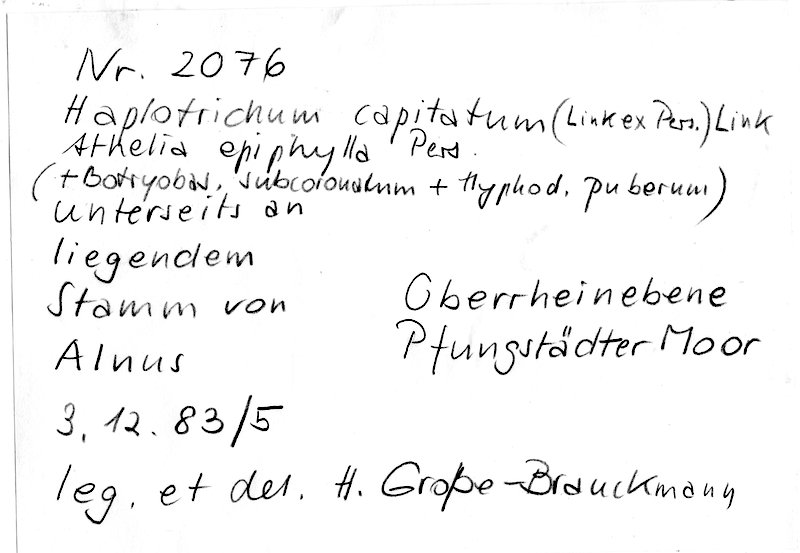 Nr. 2076
Haplotrichum capitatum (Link ex Pers.) Link
Athelia epiphylla Pers.
(+ Botryobas. subcoronatum + Hyphod. puberum)
unterseits an
liegendem
Stamm von
Alnus
Oberrheinebene
Pfungstädter Moor
3. 12. 83/5
leg. et det. H. Große-Brauckmann